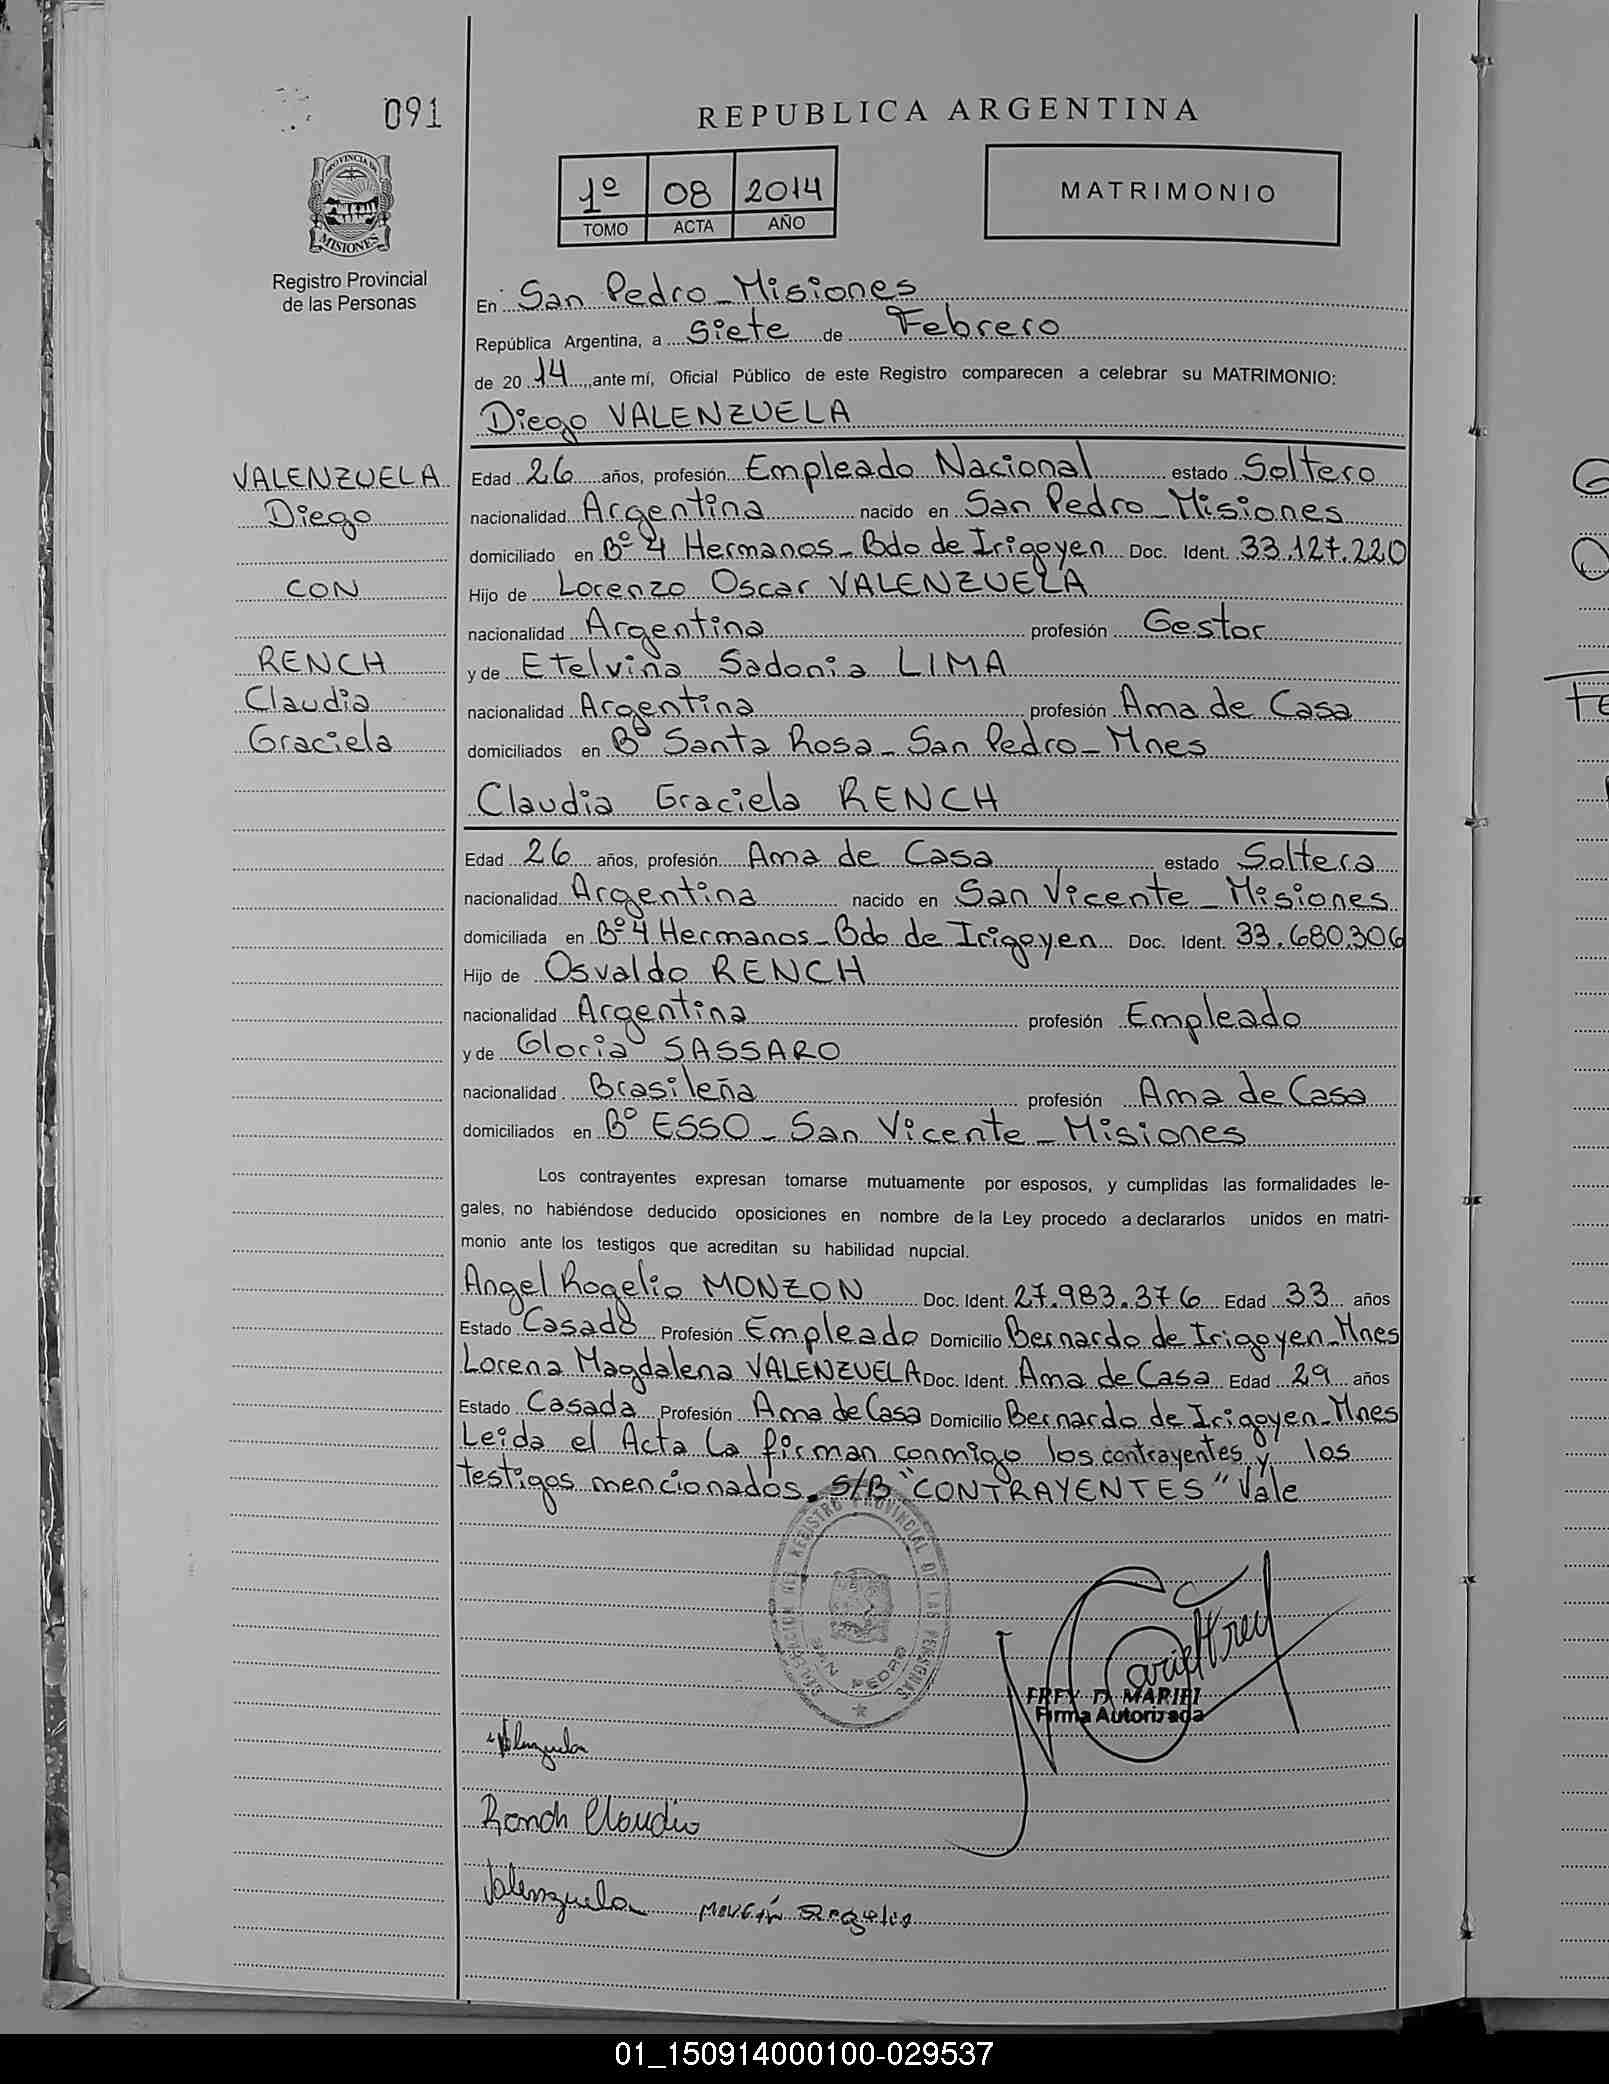 091
REPUBLICA ARGENTINA
PROVINCIA DE
MISIONES
Registro Provincial
de las Personas
1º 08 2014
TOMO ACTA AÑO
MATRIMONIO
En San Pedro - Misiones
República Argentina, a Siete de Febrero
de 20 14, ante mí, Oficial Público de este Registro comparecen a celebrar su MATRIMONIO:
Diego VALENZUELA
VALENZUELA
Diego
CON
RENCH
Claudia
Graciela
Edad 26 años, profesión Empleado Nacional estado Soltero
nacionalidad Argentina nacido en San Pedro - Misiones
domiciliado en Bº 4 Hermanos - Bdo de Irigoyen Doc. Ident. 33.127.220
Hijo de Lorenzo Oscar VALENZUELA
nacionalidad Argentina profesión Gestor
y de Etelvina Sadonia LIMA
nacionalidad Argentina profesión Ama de Casa
domiciliados en Bº Santa Rosa - San Pedro - Mnes
Claudia Graciela RENCH
Edad 26 años, profesión Ama de Casa estado Soltera
nacionalidad Argentina nacido en San Vicente - Misiones
domiciliada en Bº 4 Hermanos - Bdo de Irigoyen Doc. Ident. 33.680.306
Hijo de Osvaldo RENCH
nacionalidad Argentina profesión Empleado
y de Gloria SASSARO
nacionalidad Brasileña profesión Ama de Casa
domiciliados en Bº ESSO - San Vicente - Misiones
Los contrayentes expresan tomarse mutuamente por esposos, y cumplidas las formalidades le-
gales, no habiéndose deducido oposiciones en nombre de la Ley procedo a declararlos unidos en matri-
monio ante los testigos que acreditan su habilidad nupcial.
Angel Rogelio MONZON Doc. Ident. 27.983.376 Edad 33 años
Estado Casado Profesión Empleado Domicilio Bernardo de Irigoyen - Mnes
Lorena Magdalena VALENZUELA Doc. Ident. Ama de Casa Edad 29 años
Estado Casada Profesión Ama de Casa Domicilio Bernardo de Irigoyen - Mnes
Leida el Acta la firman conmigo los contrayentes y los
testigos mencionados. S/B "CONTRAYENTES" Vale
REGISTRO PROVINCIAL DE LAS PERSONAS
SAN PEDRO
FREY D. MARIEL
Firma Autorizada
Valenzuela
Rench Claudia
Valenzuela Monzón Rogelio
01_150914000100-029537